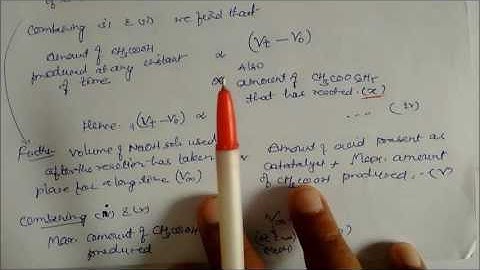 Combining (i) & (ii) we find that
Amount of CH3COOH produced at any instant of time ∝ (Vt – V0)
Also
∝ amount of CH3COOCH3 that has reacted (x)
... (iv)
Hence, (Vt – V0) ∝
Further volume of NaOH soln used after the reaction has taken place for a long time (V∞)
Amount of acid present as catalyst + Max. amount of CH3COOH produced -- (v)
Combining (i) & (v)
Max. amount of CH3COOH produced